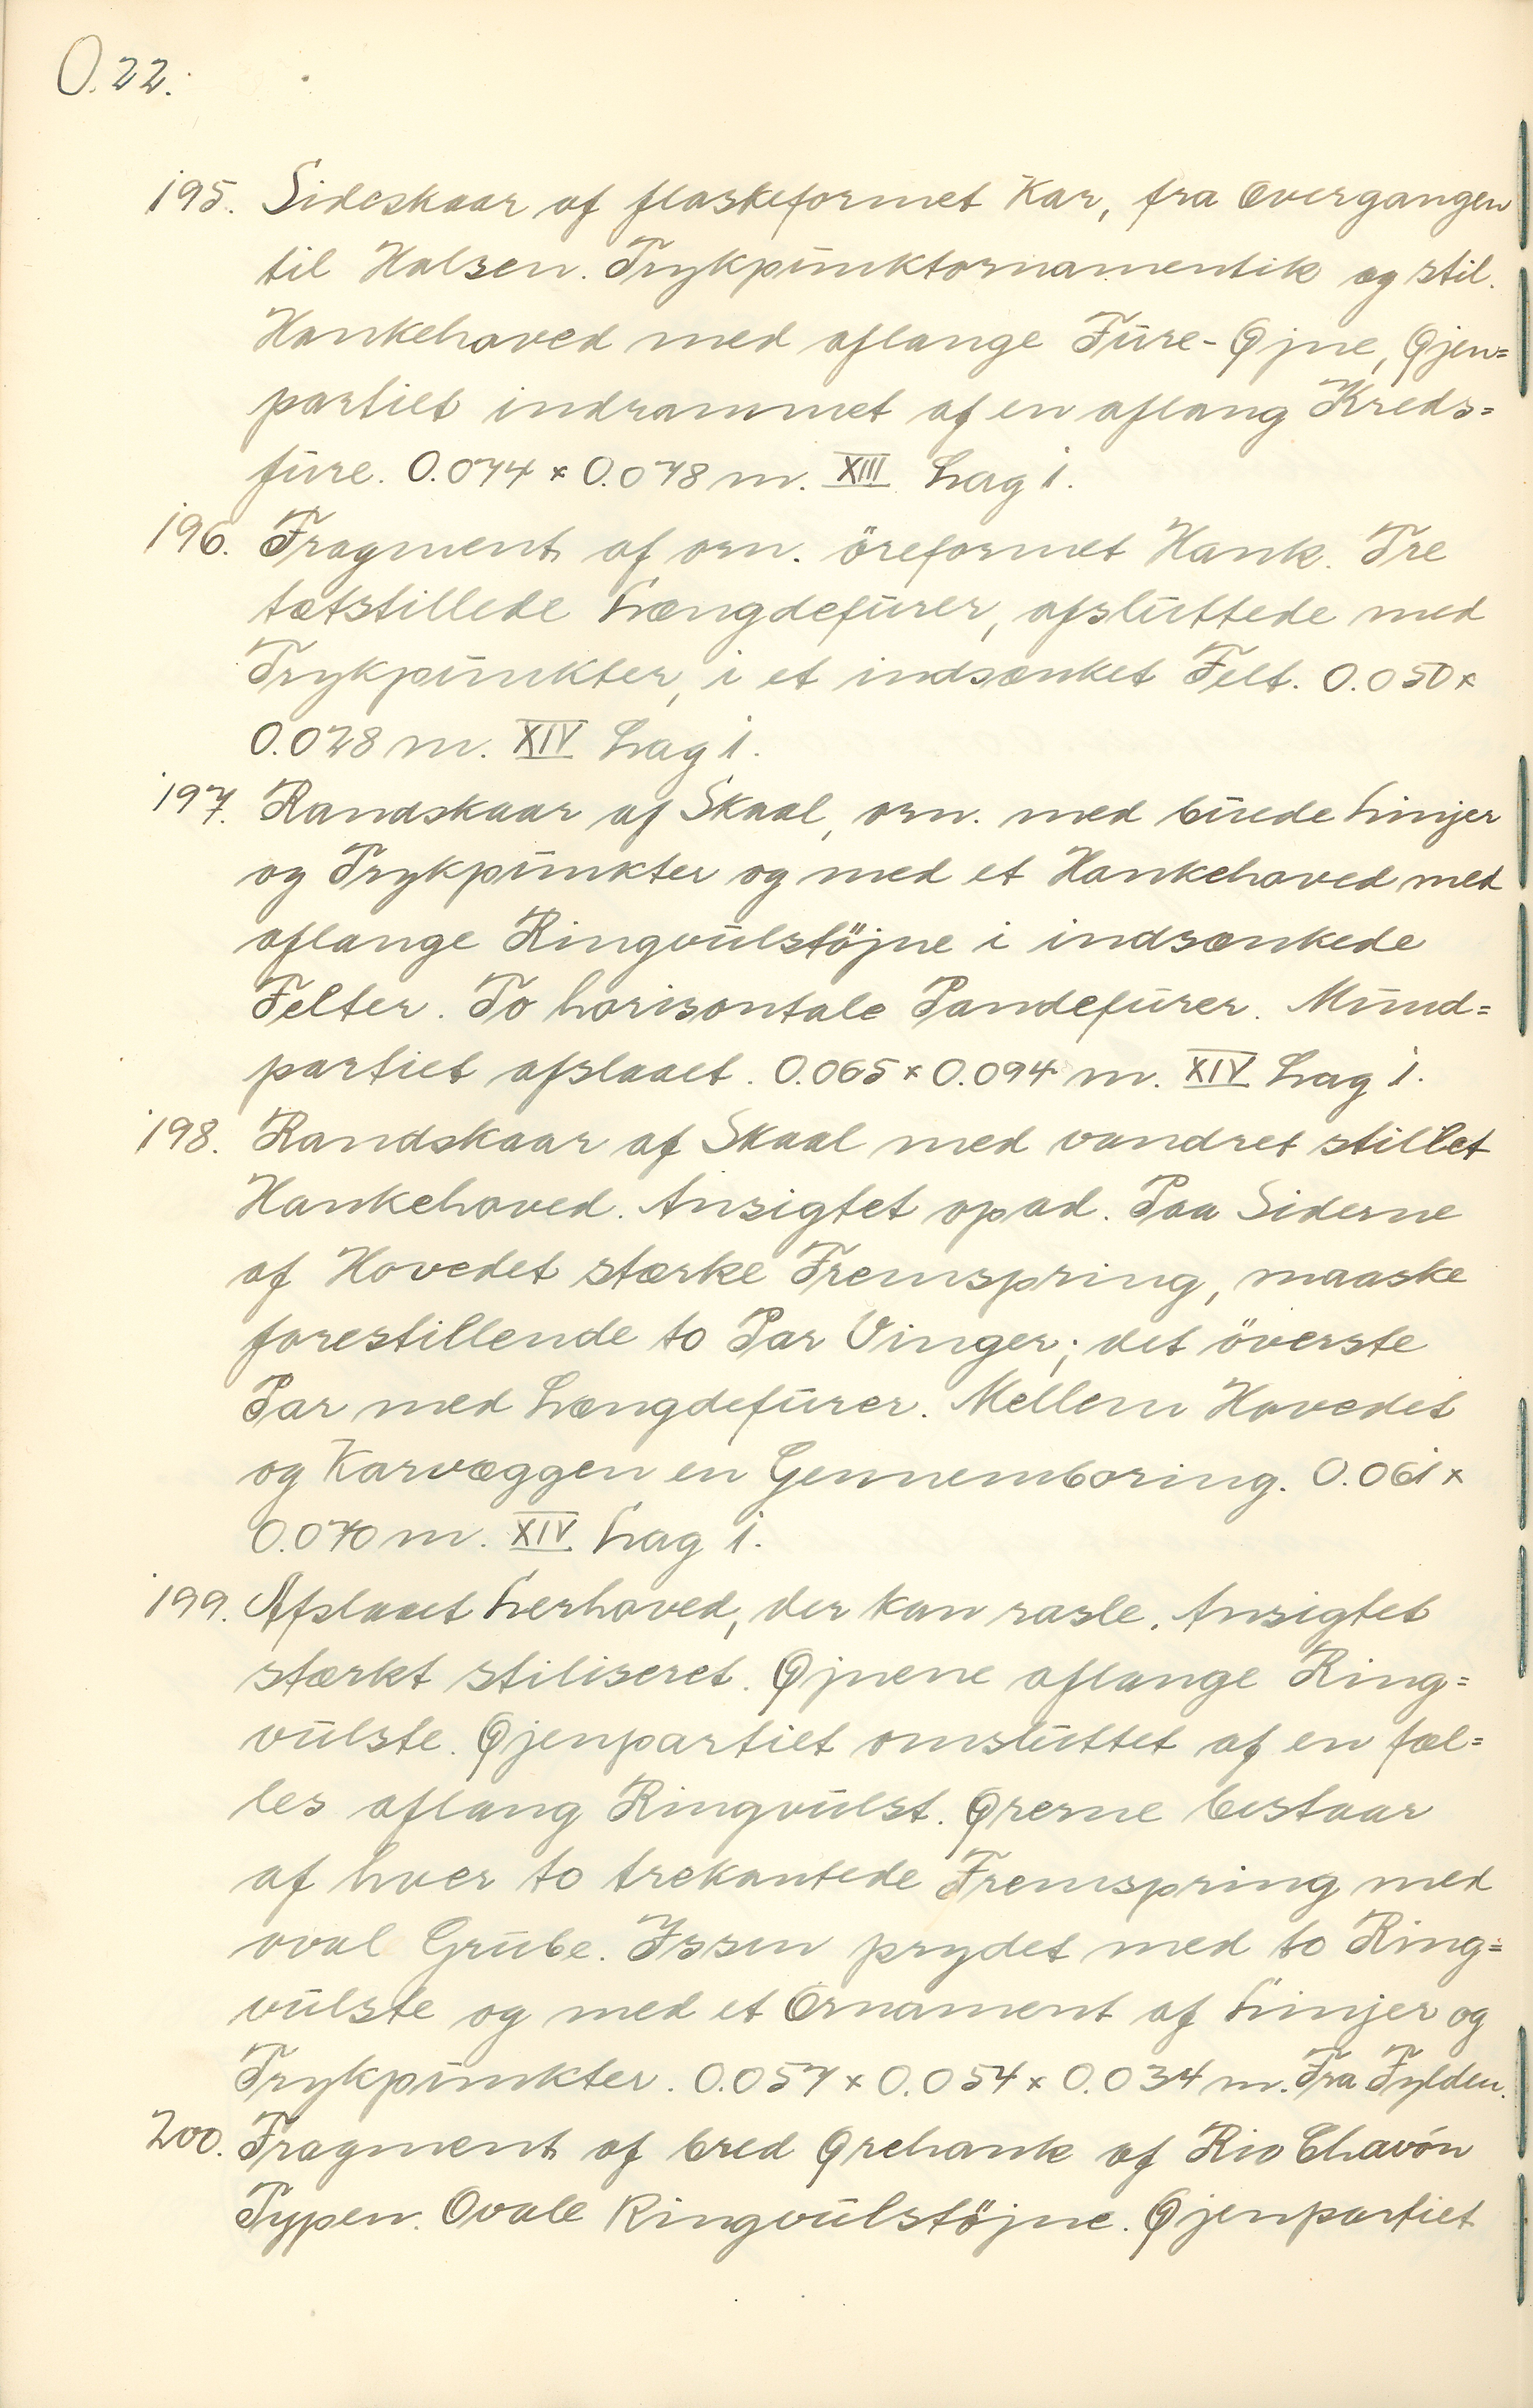 O.22.
195. Sideskaar af flaskeformet Kar, fra Overgangen
til Halsen. Trykpunktornamentik og stil.
Hankehoved med aflange Fure-Øjne, Øjen=
partiet indrammet af en aflang Kreds=
fure. 0.074 × 0.078 m. XIII Lag 1.
196. Fragment af orn. öreformet Hank. Tre
tætstillede Længdefurer, afsluttede med
Trykpunkter, i et indsænket Felt. 0.050 ×
0.028 m. XIV Lag 1.
197. Randskaar af Skaal, orn. med buede Linjer
og Trykpunkter og med et Hankehoved med
aflange Ringvulstöjne i indsænkede
Felter. To horisontale Pandefurer. Mund=
partiet afslaaet. 0.065 × 0.094 m. XIV Lag 1.
198. Randskaar af Skaal med vandret stillet
Hankehoved. Ansigtet opad. Paa Siderne
af Hovedet stærke Fremspring, maaske
forestillende to Par Vinger; det överste
Par med Længdefurer. Mellem Hovedet
og Karvæggen en Gennemboring. 0.061 ×
0.070 m. XIV Lag 1.
199. Afslaaet Lerhoved, der kan rasle. Ansigtet
stærkt stiliseret. Øjnene aflange Ring=
vulste. Øjenpartiet omsluttet af en fæl=
les aflang Ringvulst. Ørerne bestaar
af hver to trekantede Fremspring med
oval Grube. Issen prydet med to Ring=
vulste og med et Ornament af Linjer og
Trykpunkter. 0.057 × 0.054 × 0.034 m. Fra Fylden.
200. Fragment af bred Ørehank af Rio Chavón
Typen. Ovale Ringvulstöjne. Øjenpartiet